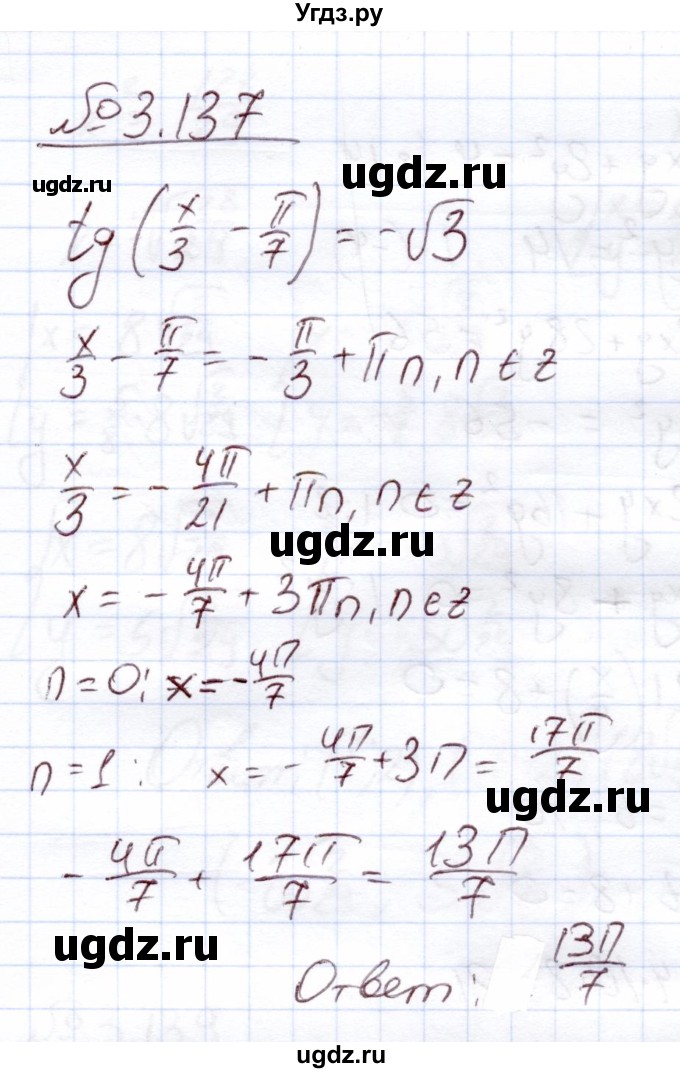 Угдз.ру
№ 3.137
ugdz.ru
ugdz.ru
tg(x/3 - π/7) = -√3
x/3 - π/7 = - π/3 + πn, n ∈ z
x/3 = - 4π/21 + πn, n ∈ z
ugdz.ru
x = - 4π/7 + 3πn, n ∈ z
n = 0: x = - 4π/7
n = 1: x = - 4π/7 + 3π = 17π/7
ugdz.ru
- 4π/7 + 17π/7 = 13π/7
ugdz.ru
Ответ: 13π/7
ugdz.ru
ugdz.ru